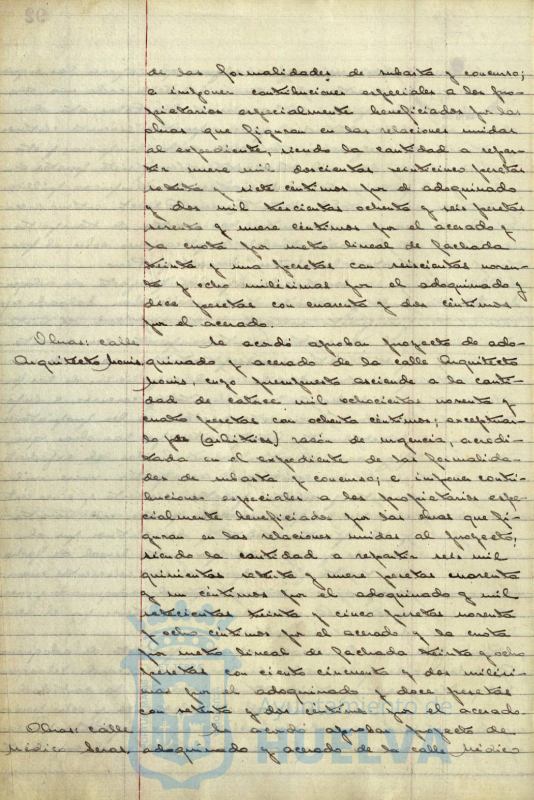 de las formalidades de subasta y concurso;
e imponer contribuciones especiales a los pro-
pietarios especialmente beneficiados por las
obras que figuran en las relaciones unidas
al expediente, siendo la cantidad a repar-
tir nueve mil doscientas veinticinco pesetas
setenta y siete céntimos por el adoquinado
y dos mil trescientas ochenta y seis pesetas
sesenta y nueve céntimos por el acerado y
la cuota por metro lineal de fachada
treinta y una pesetas con seiscientas noven-
ta y ocho milésimas por el adoquinado y
doce pesetas con cuarenta y dos céntimos
por el acerado.
Obras: calle
Arquitecto Monís.
Se acordó aprobar proyecto de ado-
quinado y acerado de la calle Arquitecto
Monís, cuyo presupuesto asciende a la canti-
dad de catorce mil ochocientas noventa y
cuatro pesetas con ochenta céntimos; exceptuar-
lo por (arbitrios) razón de urgencia, acredi-
tada en el expediente de las formalida-
des de subasta y concurso; e imponer contri-
buciones especiales a los propietarios espe-
cialmente beneficiados por las obras que fi-
guran en las relaciones unidas al proyecto,
siendo la cantidad a repartir seis mil
quinientas setenta y nueve pesetas cuarenta
y un céntimos por el adoquinado y mil
setecientas treinta y cinco pesetas noventa
y ocho céntimos por el acerado y la cuota
por metro lineal de fachada treinta y ocho
pesetas con ciento cincuenta y dos milési-
mas por el adoquinado y doce pesetas
con setenta y dos céntimos por el acerado.
Obras: calle
Médico Seras.
Se acordó aprobar proyecto de
adoquinado y acerado de la calle Médico
Ayuntamiento de
HUELVA